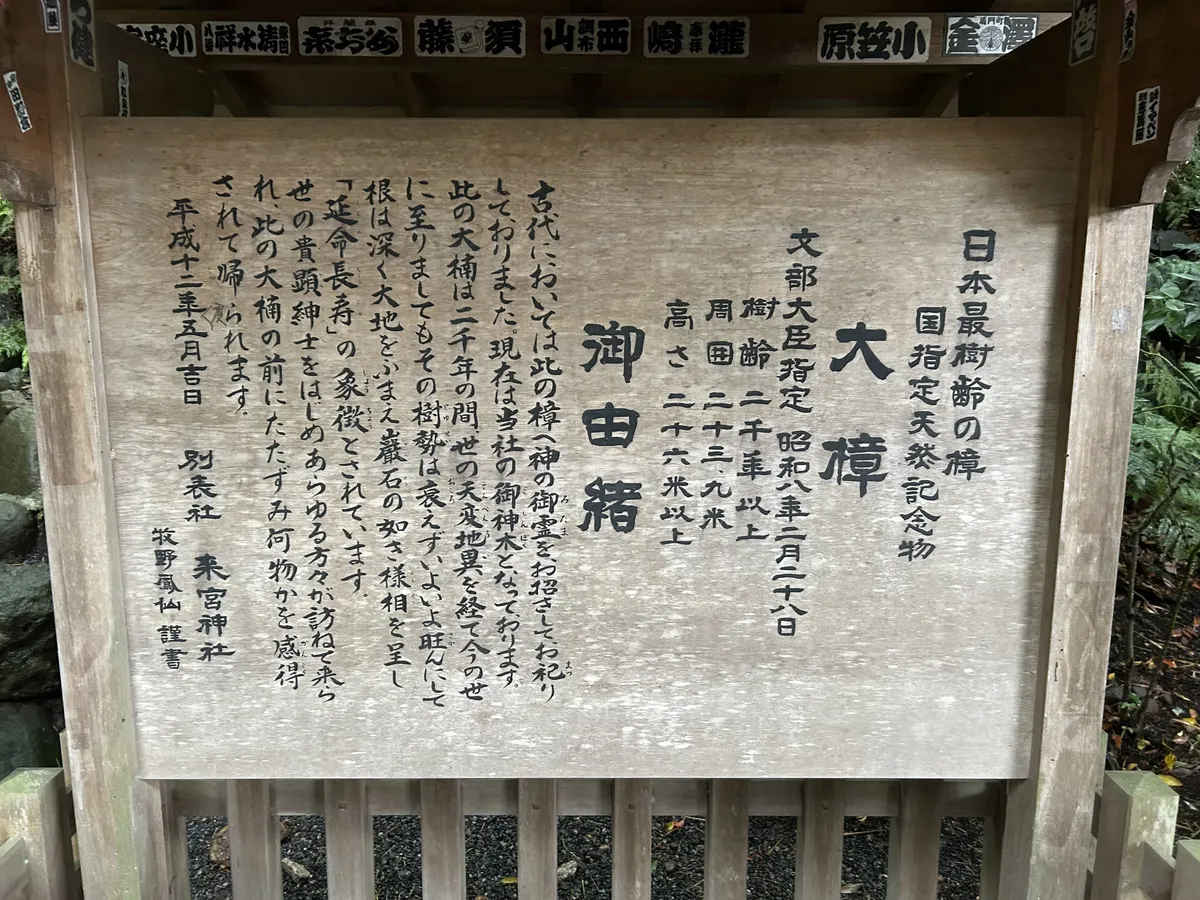 日本最樹齢の樟
国指定天然記念物
大樟
文部大臣指定 昭和八年二月二十八日
樹齢 二千年以上
周囲 二十三、九米
高さ 二十六米以上
御由緒
古代においては此の樟へ神の御霊をお招きしてお祀り
しておりました。現在は当社の御神木となっております。
此の大楠は二千年の間世の天変地異を経て今の世
に至りましてもその樹勢は衰えずいよいよ旺んにして
根は深く大地をふまえ巖石の如き様相を呈し
「延命長寿」の象徴とされています。
世の貴顕紳士をはじめあらゆる方々が訪ねて来ら
れ、此の大楠の前にたたずみ何物かを感得
されて帰られます。
平成十二年五月吉日
別表社 来宮神社
牧野鳳仙 謹書
小笠原
瀧嶋
西山
調布
須藤
清水祥